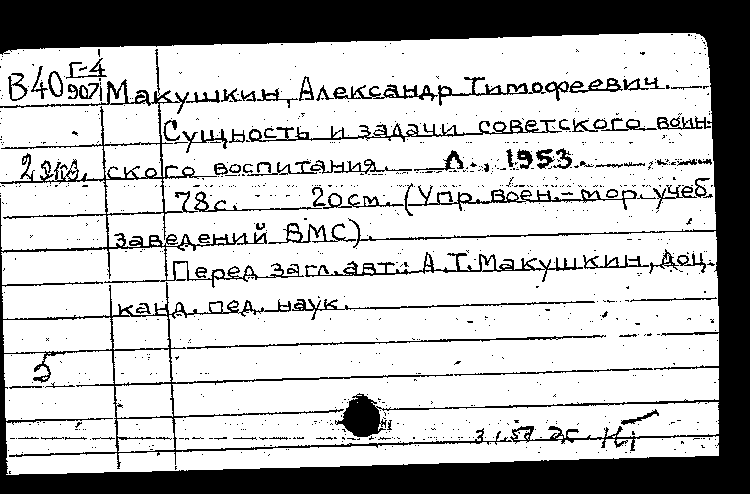 В40 Г-4
907 Макушкин, Александр Тимофеевич.
Сущность и задачи советского воин-
2 экз. ского воспитания. Л., 1953.
78с. 20см. (Упр. воен.-мор. учеб.
заведений ВМС).
Перед загл. авт.: А.Т.Макушкин, доц.,
канд. пед. наук.
5